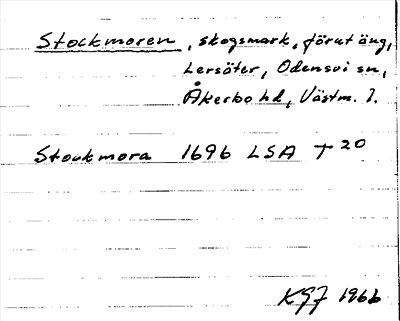 Stockmoren, skogsmark, förut äng,
Lersäter, Odensvi sn,
Åkerbo hd, Västm. l.
Stockmora 1696 LSA T 20
KGJ 1966